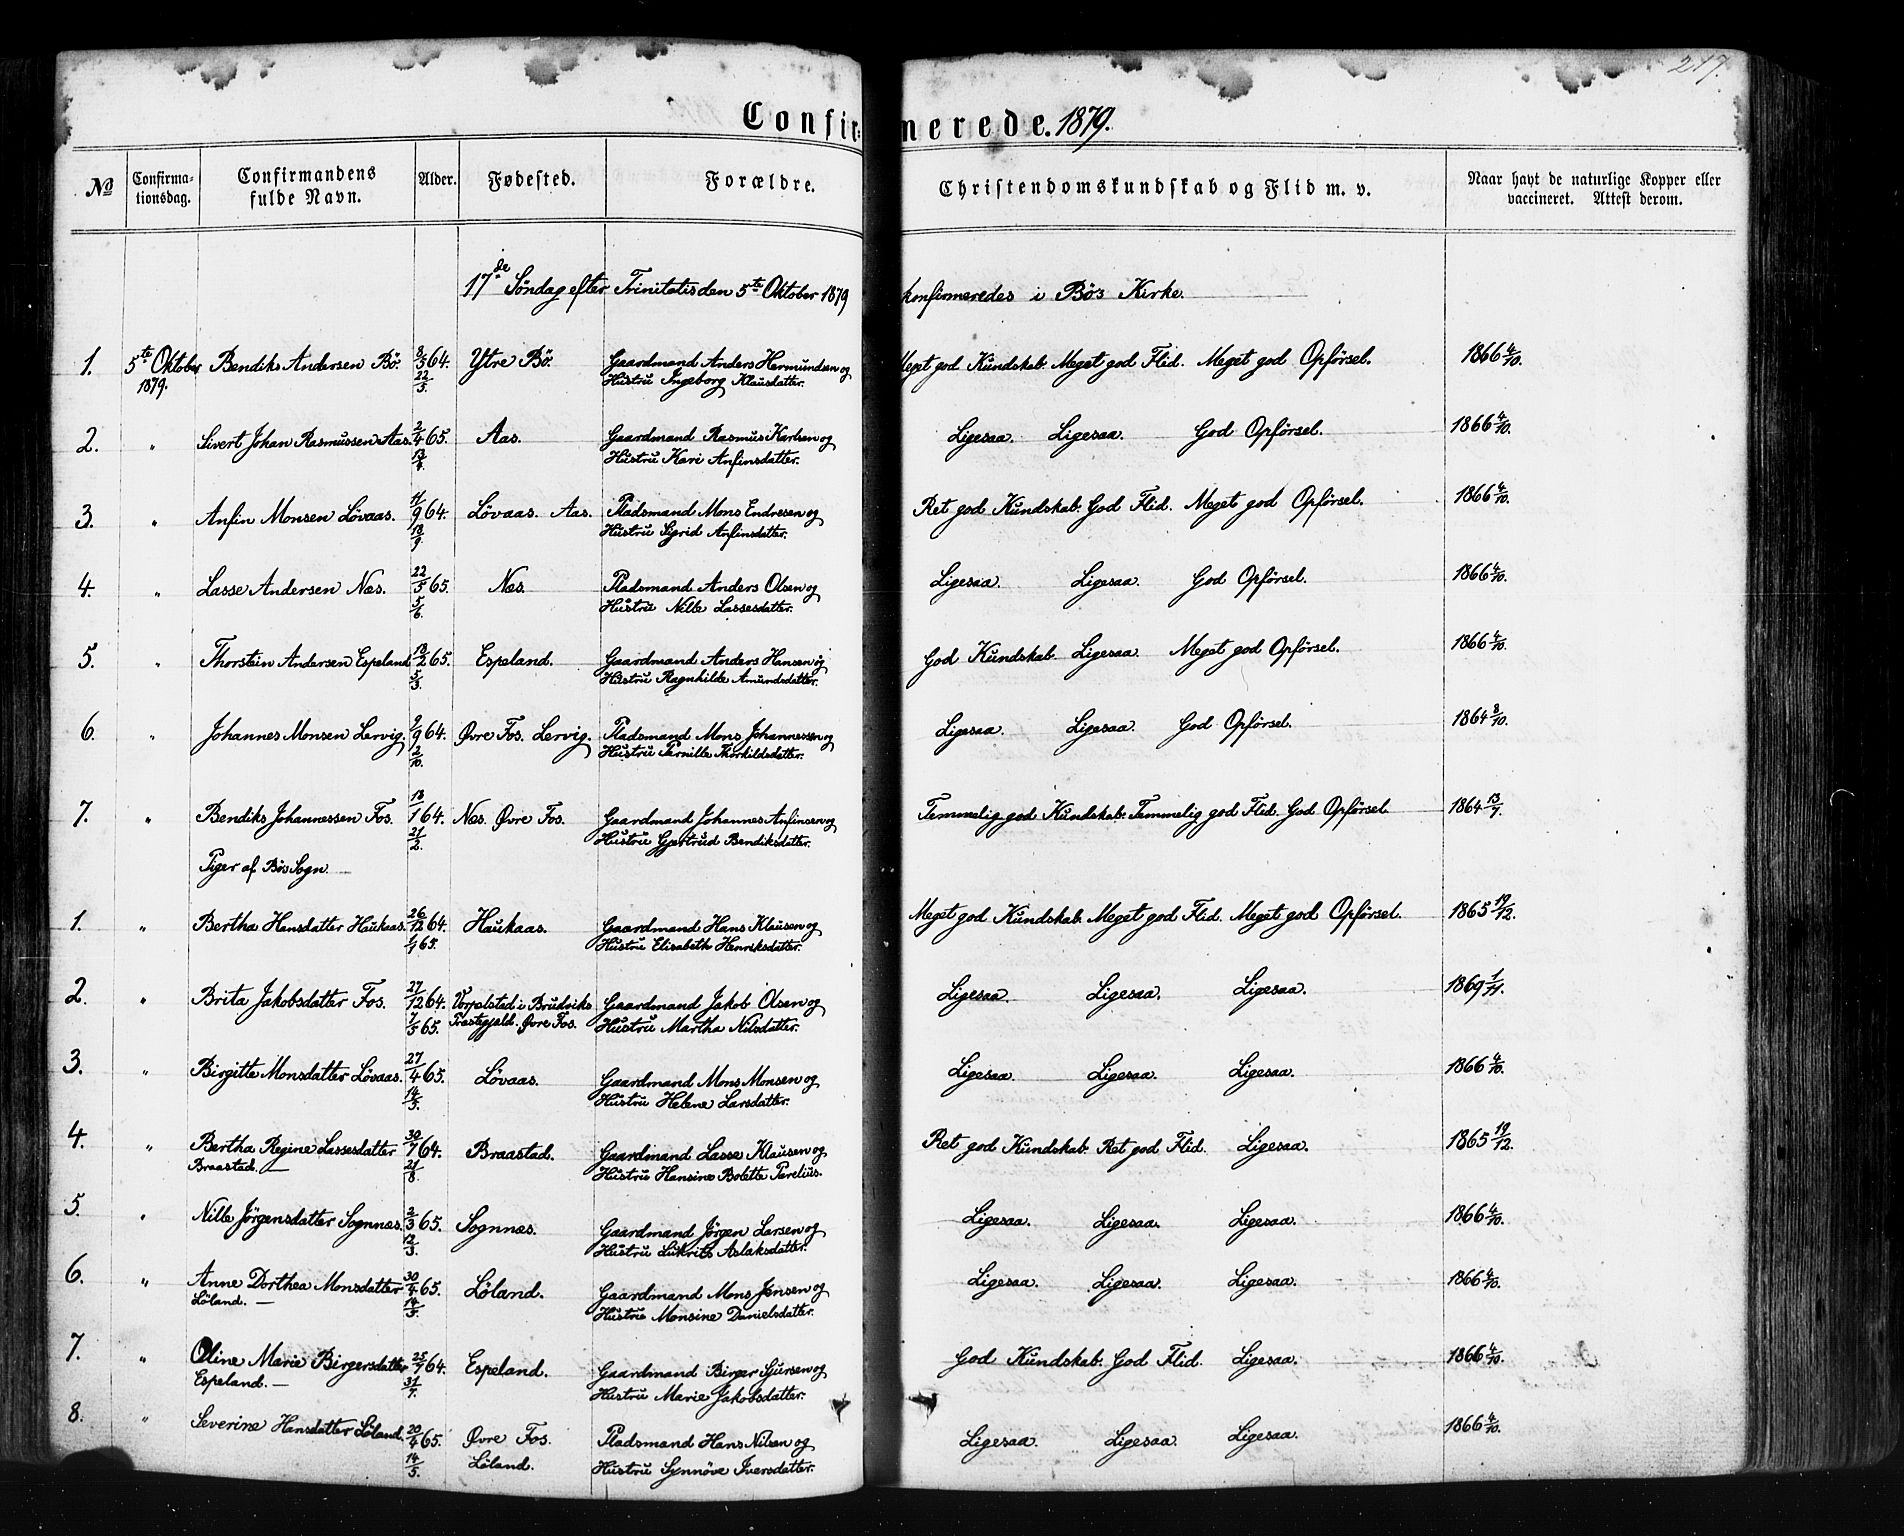 217.
Confirmerede. 1879.
№ Confirmationsdag. Confirmandens fulde Navn. Alder. Fødested. Forældre. Christendomskundskab og Flid m. v. Naar havt de naturlige Kopper eller vaccineret. Attest derom.
17de Söndag efter Trinitatis den 5te Oktober 1879 konfirmeredes i Bös Kirke.
1. 5te Oktober Bendiks Andersen Bö. 8/5 64. Ytre Bö. Gaardmand Anders Hermundsen og Meget god Kundskab. Meget god Flid. Meget god Opförsel. 1866 4/10.
1879. 22/5. Hustru Ingeborg Klausdatter.
2. " Sivert Johan Rasmussen Aas. 2/4 65. Aas. Gaardmand Rasmus Karlsen og Ligesaa. Ligesaa. God Opförsel. 1866 4/10.
13/4. Hustru Kari Anfinsdatter.
3. " Anfin Monsen Lövaas. 11/9 64. Lövaas. Aas. Pladsmand Mons Endresen og Ret god Kundskab. God Flid. Meget god Opförsel. 1866 4/10.
18/9. Hustru Sigrid Anfinsdatter.
4. " Lasse Andersen Nes. 22/5 65. Nes. Pladsmand Anders Olsen og Ligesaa. Ligesaa. God Opförsel. 1866 4/10.
5/6. Hustru Nille Lassesdatter.
5. " Thorstein Andersen Espeland 18/2 65. Espeland. Gaardmand Anders Hansen og God Kundskab. Ligesaa. Meget god Opförsel. 1866 4/10.
5/3. Hustru Ragnhilde Amundsdatter.
6. " Johannes Monsen Lervig. 9/9 64. Øvre Fos. Lervig. Pladsmand Mons Johannessen og Ligesaa. Ligesaa. God Opförsel. 1864 8/10.
2/10. Hustru Pernille Thorkildsdatter.
7. " Bendiks Johannessen Fos. 18/1 64. Nes. Øvre Fos. Gaardmand Johannes Anfinsen og Temmelig god Kundskab. Temmelig god Flid. God Opförsel. 1864 13/7.
21/2. Hustru Gjertrud Bendiksdatter.
Piger af Bös Sogn.
1. " Bertha Hansdatter Haukaas. 26/12 64. Haukaas. Gaardmand Hans Klausen og Meget god Kundskab. Meget god Flid. Meget god Opförsel. 1865 19/12.
1/1 65. Hustru Elisabeth Henriksdatter.
2. " Brita Jakobsdatter Fos. 27/12 64. Vorpelstad i Brudviks Gaardmand Jakob Olsen og Ligesaa. Ligesaa. Ligesaa. 1869 1/11.
7/5 65. Præstegjeld. Øvre Fos. Hustru Martha Nilsdatter.
3. " Birgitte Monsdatter Lövaas. 27/4 65. Lövaas. Gaardmand Mons Monsen og Ligesaa. Ligesaa. Ligesaa. 1866 4/10.
14/5. Hustru Helene Larsdatter.
4. " Bertha Regine Lassesdatter 30/7 64. Braastad. Gaardmand Lasse Klausen og Ret god Kundskab. Ret god Flid. Ligesaa. 1865 19/12.
Braastad. 21/8. Hustru Hansine Bolette Parelius.
5. " Nille Jörgensdatter Sognnes. 2/3 65. Sognnes. Gaardmand Jörgen Larsen og Ligesaa. Ligesaa. Ligesaa. 1866 4/10.
12/3. Hustru Lukrits Aslaksdatter.
6. " Anne Dorthea Monsdatter 30/4 65. Löland. Gaardmand Mons Jensen og Ligesaa. Ligesaa. Ligesaa. 1866 4/10.
Löland. 14/5. Hustru Monsine Danielsdatter.
7. " Oline Marie Birgersdatter 25/7 64. Espeland. Gaardmand Birger Sjursen og God Kundskab. God Flid. Ligesaa. 1866 4/10.
Espeland. 31/7. Hustru Marie Jakobsdatter.
8. " Severine Hansdatter Löland. 20/4 65. Øvre Fos. Pladsmand Hans Nilsen og Ligesaa. Ligesaa. Ligesaa. 1866 4/10.
14/5. Löland. Hustru Synnöve Iversdatter.